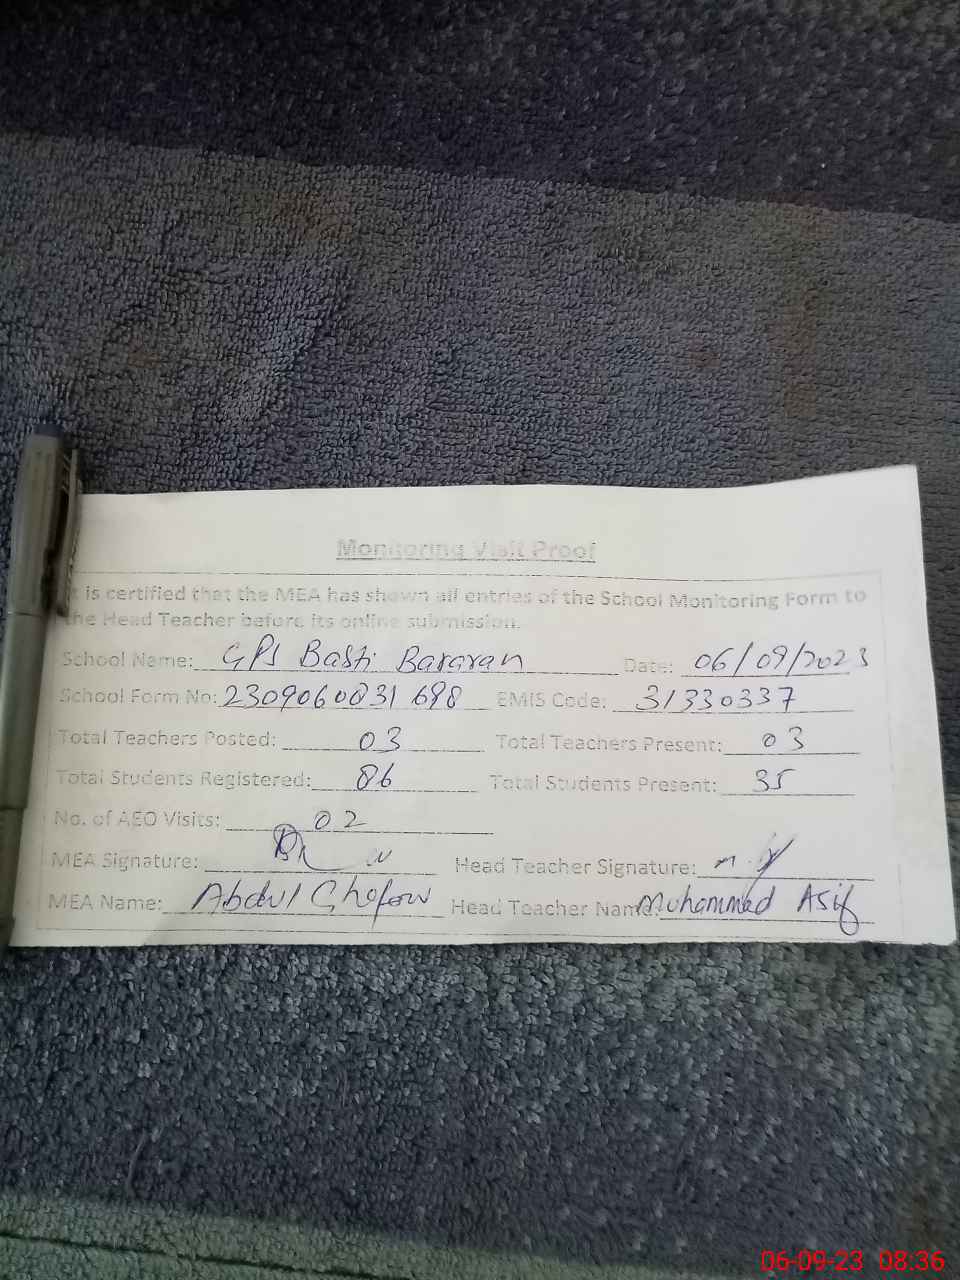 Monitoring Visit Proof
It is certified that the MEA has shown all entries of the School Monitoring Form to
the Head Teacher before its online submission.
School Name: GPS Basti Bararan Date: 06/09/2023
School Form No: 2309060831698 EMIS Code: 31330337
Total Teachers Posted: 03 Total Teachers Present: 03
Total Students Registered: 86 Total Students Present: 35
No. of AEO Visits: 02
MEA Signature: Head Teacher Signature:
MEA Name: Abdul Ghafow Head Teacher Name: Muhammad Asif
06-09-23 08:36